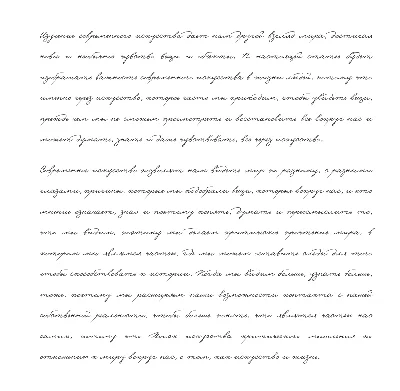 Изучение современного искусства дает нам другой взгляд мира, достигая
новой и необычно чувства вещи и объекты. В настоящей статье будет
изображать важность современного искусства в жизни людей, потому что
именно через искусство, которое часто мы приходим, чтобы увидеть вещи,
прежде чем мы не можем просмотреть и восстановить все вокруг нас и
может думать, знать и даже чувствовать, все через искусство.
Современное искусство позволяет нам видеть мир по разному, с разными
глазами, причины, которые мы подобрали вещи, которые вокруг нас, и кто
многие означает, зная и поэтому понять, думать и преломлять то,
что мы видим, потому мы делаем критические прочтение мира, в
котором мы являемся частью, где мы можем оставить следы для того
чтобы способствовать к истории. Когда мы видим больше, узнать больше,
тоже, поэтому мы расширяем наши возможности контакта с нашей
собственной реальности, чтобы больше знать, что является частью нас
самим, потому что Язык искусства критического мышления по
отношению к миру вокруг нас, о том, как искусство и жизнь.